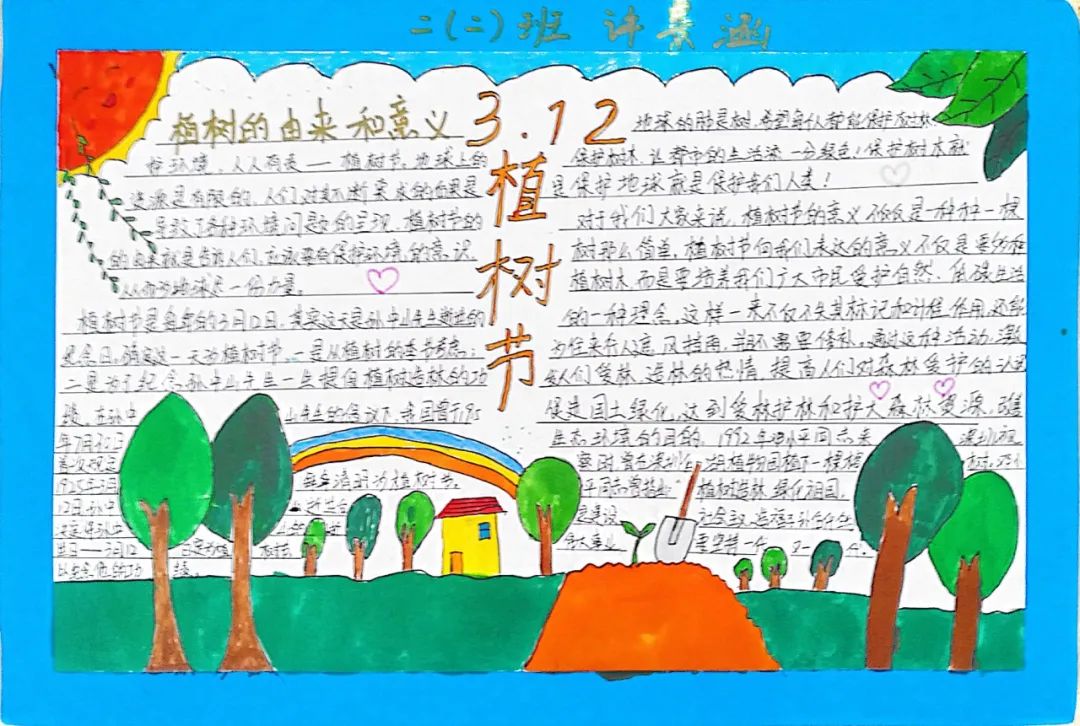 二(二)班 许景涵
植树的由来和意义
3.12
植树节
好环境，人人有责——植树节，地球上的
资源是有限的，人们对其不断索求的后果是
导致了各种环境问题的呈现，植树节的
的由来就是告诉人们，应该要有保护环境的意识，
从而为地球尽一份力量。
植树节是每年的3月12日，其实这天是孙中山先生逝世的
纪念日，确定这一天为植树节，一是从植树的季节考虑；
二是为了纪念孙中山先生一生提倡植树造林的功
绩。在孙中山先生的倡议下，我国曾于1915
年7月
首次规定 每年清明为植树节。
1925年3月
12日孙中山 逝世
日——3月12日
以纪念他的功绩。
地球的肺是树，希望每个人都能保护树林
保护树林，让都市的生活添一分绿色！保护树木就
是保护地球就是保护我们人类！
对于我们大家来说，植树节的意义不仅仅是一种种一棵
树那么简单，植树节向我们表达的意义不仅是要纺和
植树木，而是要培养我们广大市民爱护自然、低碳生活
的一种理念，这样一来不仅不失其标记和计程作用，还能
为往来行人遮风挡雨，并且不需要修补。通过这种活动，激
发人们爱林、造林的热情，提高人们对森林爱护的认识
促进国土绿化，达到爱林护林和扩大森林资源，改善
生态环境的目的。1992年邓小平同志来深圳视
察时，曾在深圳仙湖植物园植下一棵 树。邓小
平同志曾 植树造林，绿化祖国，
是建设社会主义，造福子孙后代的
伟大事业，要坚持